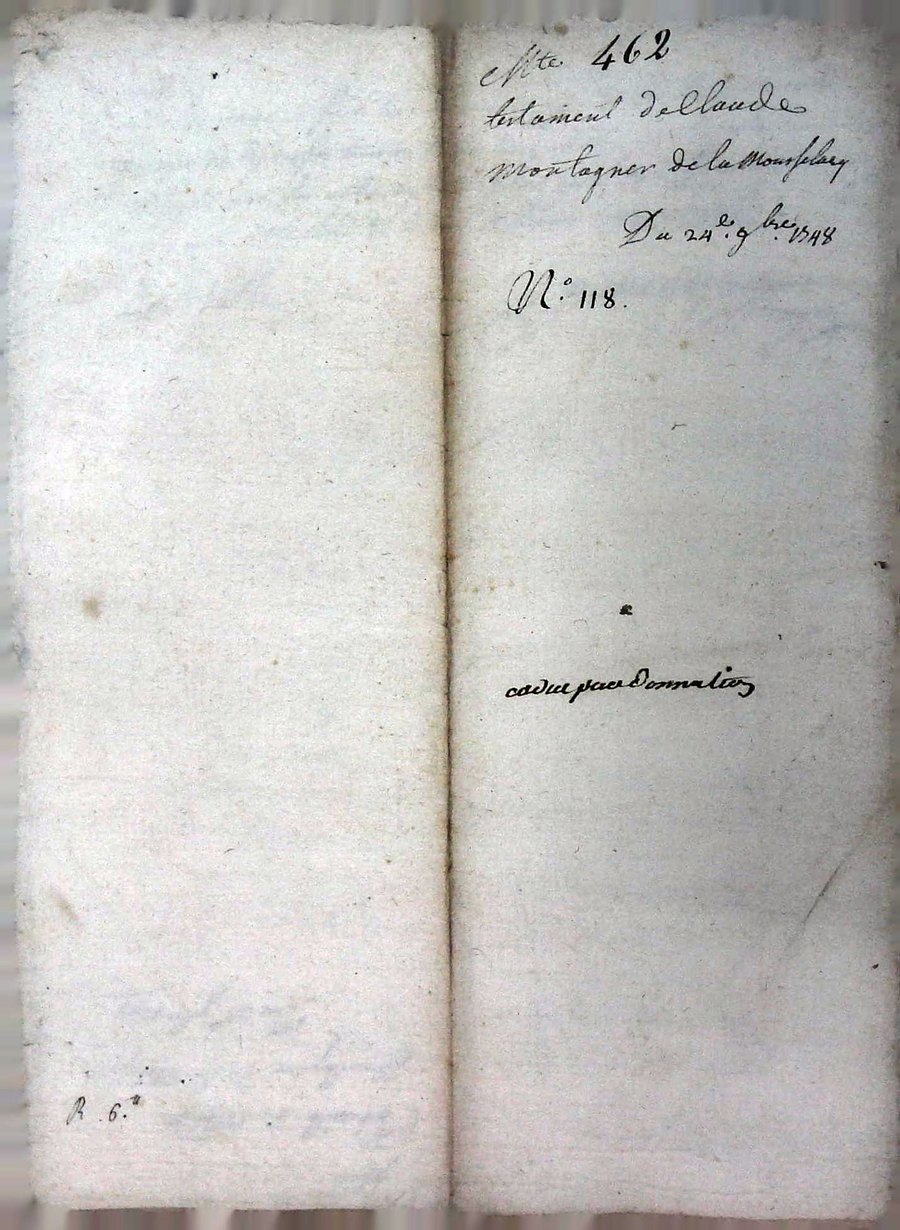 Mte 462
testament de Claude
montagner de la
Du 24e. 9bre. 1748
N.o 118.
caduc par donnation
R. 6.tt